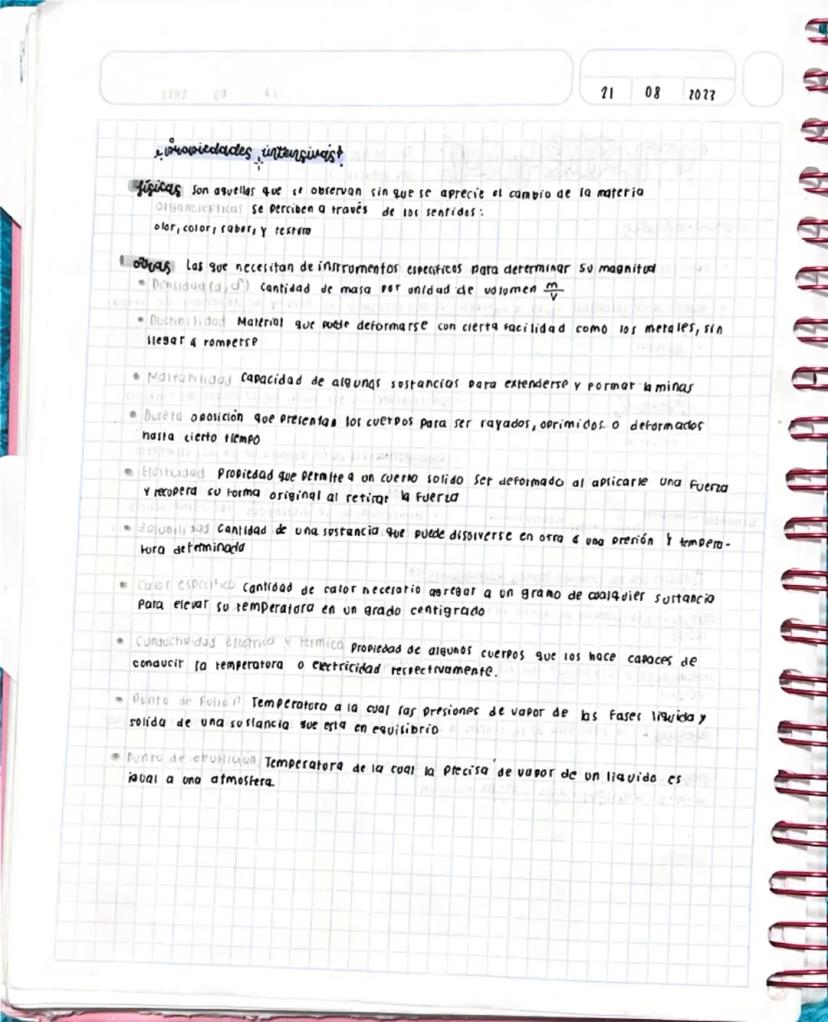 21 08 2023
propiedades intensivas
físicas son aquellas que se observan sin que se aprecie el cambio de la materia
organolepticas se perciben a través de los sentidos:
olor, color, sabor, y textura
otras Las que necesitan de instrumentos especificos para determinar su magnitud
• Densidad (d, ) Cantidad de masa por unidad de volumen m/v
• Ductibilidad Material que puede deformarse con cierta facilidad como los metales, sin
llegar a romperse
• Maleabilidad Capacidad de algunas sustancias para extenderse y formar laminas
• Dureza oposición que presentan los cuerpos para ser rayados, oprimidos o deformados
hasta cierto tiempo
• Elasticidad Propiedad que permite a un cuerpo solido ser deformado al aplicarle una fuerza
y recupera su forma original al retirar la fuerza
• Solubilidad Cantidad de una sustancia que puede disolverse en otra a una presión y tempera-
tura determinada
• Calor especifico Cantidad de calor necesario agregar a un gramo de cualquier sustancia
para elevar su temperatura en un grado centigrado
• Conductividad electrica y termica Propiedad de algunos cuerpos que los hace capaces de
conducir la temperatura o electricidad respectivamente.
• Punto de fusion Temperatura a la cual las presiones de vapor de las fases liquida y
solida de una sustancia que esta en equilibrio
• Punto de ebullicion Temperatura de la cual la precisa de vapor de un liquido es
igual a una atmosfera.